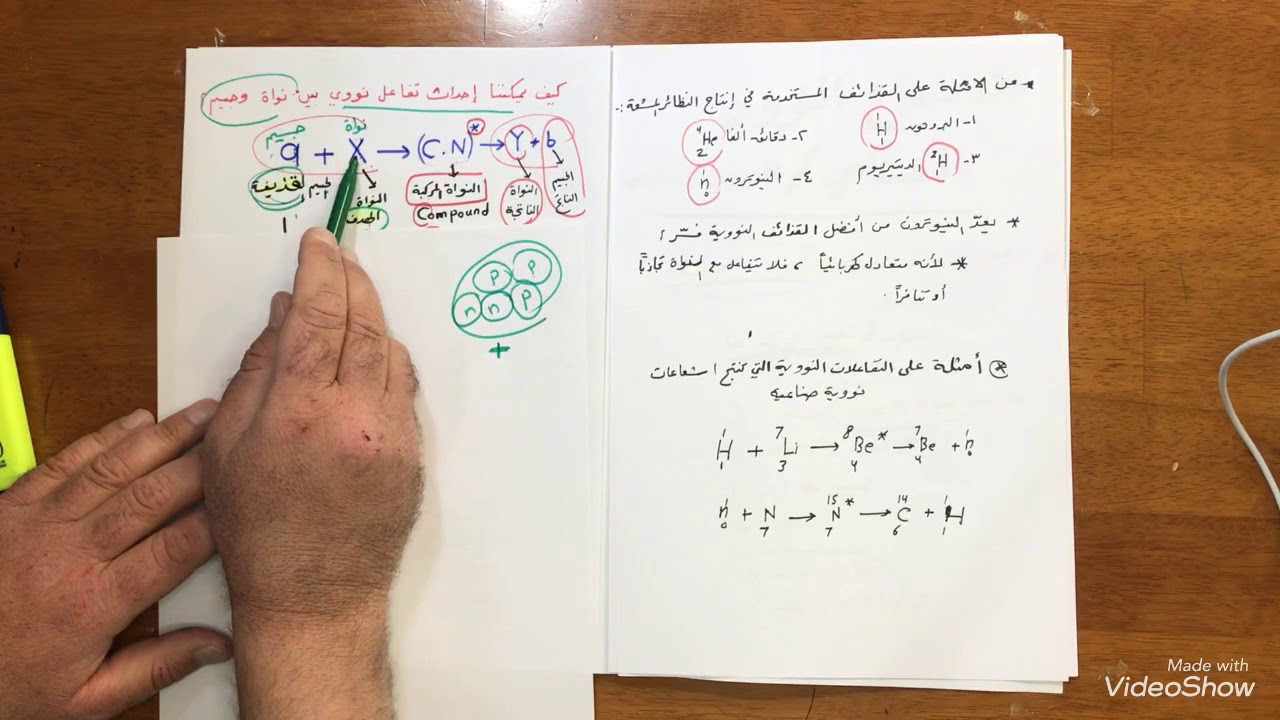 كيف يمكننا إحداث تفاعل نووي بين نواة وجسيم
جسيم نواة
a + X → (C.N)* → Y + b
قذيفة الجسيم النواة الهدف النواة المركبة Compound النواة الناتجة الجسيم الناتج
p p
n n p
+
* من الأمثلة على القذائف المستخدمة في إنتاج النظائر المشعة :.
١- البروتون ¹₁H ٢- دقائق ألفا ⁴₂He
٣- ²₁H الديتيريوم ٤- النيوترون ¹₀n
* يعدّ النيوترون من أفضل القذائف النووية فسّر؟
* لأنه متعادل كهربائياً ، فلا تتفاعل مع النواة تجاذباً
أو تنافراً .
* أمثلة على التفاعلات النووية التي تنتج اشعاعات
نووية صناعيه
¹₁H + ⁷₃Li → ⁸₄Be* → ⁷₄Be + ¹₀n
¹₀n + ₇N → ¹⁵₇N* → ¹⁴₆C + ¹₁H
Made with
VideoShow